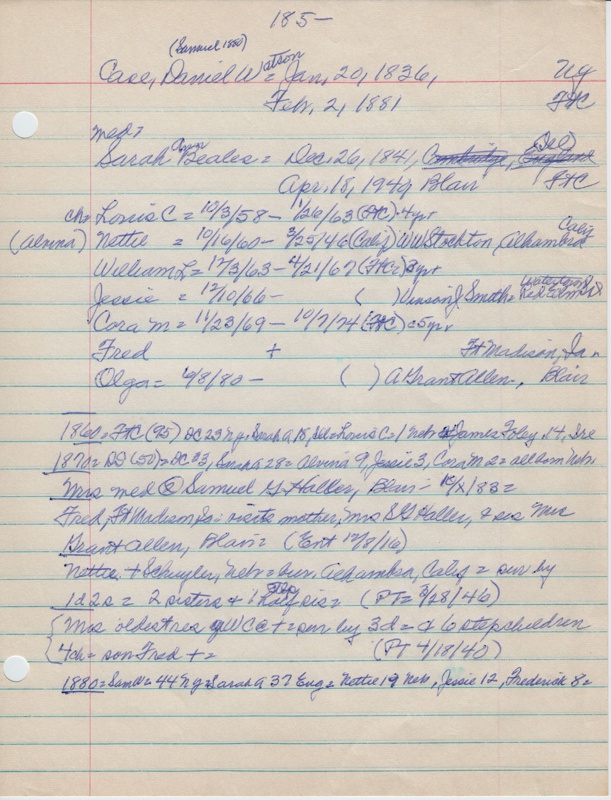 185-
(Samuel 1880)
Case, Daniel Watson = Jan, 20, 1836, NY
Feb, 2, 1881 FtC
med =
Sarah Ann Beales = Dec, 26, 1841, Del
Apr. 18, 1949 Blair FtC
ch = Louis C = 10/3/58 - 1/26/63 (FtC) 4 yr
(Alvina) Nettie = 10/16/60 - 3/25/46 (Calif) WW Stockton, Alhambra Calif
William L = 12/3/63 - 4/21/67 (FtC) 3 yr
Jessie = 12/10/66 - ( ) Vinson J. Smith =
Cora M = 11/23/69 - 10/7/74 (FtC) = 5 yr
Fred + Ft Madison, Ia
Olga = 6/8/80 - ( ) A Grant Allen, Blair
1860 = FtC (95) DC 23 NY, Sarah A 18, Del = Louis C = 1 Nebr James Foley 14, Ire
1870 = (50) = DC 33, Sarah A 28 = Alvina 9, Jessie 3, Cora M 2 = all born Nebr
Mrs med @ Samuel G Haller, Blair - /83 =
Fred, Ft Madison Ia = visits mother, Mrs S G Haller, & sis Mrs
Grant Allen, Blair = (Ent 12/8/16)
Nettie + Schuyler, Nebr = bur. Alhambra, Calif = sur by
1d 2s = 2 sisters & 1 step half sis = (PT = 3/28/46)
Mrs oldest res of WC + = sur by 3d = & 6 stepchildren
4ch = son Fred + = (PT 4/18/40)
1880 = Sam W = 44 NY = Sarah A 37 Eng = Nettie 19 Neb, Jessie 12, Frederick 8 =